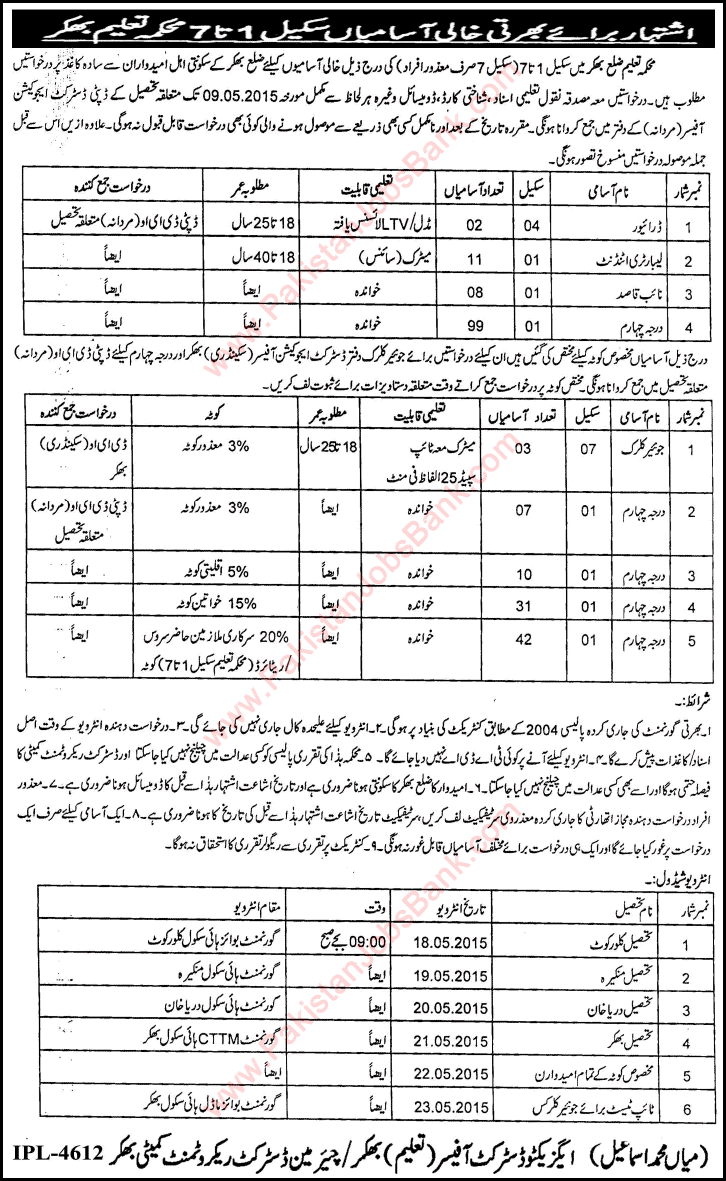 اشتہار برائے بھرتی خالی آسامیاں سکیل 1 تا 7 محکمہ تعلیم بھکر
محکمہ تعلیم ضلع بھکر میں سکیل 1 تا 7 (سکیل 7 صرف معذور افراد) کی درج ذیل خالی آسامیوں کیلئے ضلع بھکر کے سکونتی اہل امیدواران سے سادہ کاغذ پر درخواستیں
مطلوب ہیں۔ درخواستیں معہ مصدقہ نقول تعلیمی اسناد، شناختی کارڈ، ڈومیسائل وغیرہ ہر لحاظ سے مکمل مورخہ 09.05.2015 تک متعلقہ تحصیل کے ڈپٹی ڈسٹرکٹ ایجوکیشن
آفیسر (مردانہ) کے دفتر میں جمع کروانا ہونگی۔ مقررہ تاریخ کے بعد اور نامکمل کسی بھی ذریعے سے موصول ہونے والی کوئی بھی درخواست قابل قبول نہ ہوگی۔ علاوہ ازیں اس سے قبل
جملہ موصولہ درخواستیں منسوخ تصور ہونگی۔
نمبر شمار نام آسامی سکیل تعداد آسامیاں تعلیمی قابلیت مطلوبہ عمر درخواست جمع کنندہ
1 ڈرائیور 04 02 مڈل/LTV لائسنس یافتہ 18 تا 25 سال ڈپٹی ڈی ای او (مردانہ) متعلقہ تحصیل
2 لیبارٹری اٹنڈنٹ 01 11 میٹرک (سائنس) 18 تا 40 سال ایضاً
3 نائب قاصد 01 08 خواندہ ایضاً ایضاً
4 درجہ چہارم 01 99 خواندہ ایضاً ایضاً
درج ذیل آسامیاں مخصوص کوٹہ کیلئے مختص کی گئیں ہیں ان کیلئے درخواستیں برائے جونیئر کلرک دفتر ڈسٹرکٹ ایجوکیشن آفیسر (سیکنڈری) بھکر اور درجہ چہارم کیلئے ڈپٹی ڈی ای او (مردانہ)
متعلقہ تحصیل میں جمع کروانا ہونگی۔ مختص کوٹہ پر درخواست جمع کراتے وقت متعلقہ دستاویزات برائے ثبوت لف کریں۔
نمبر شمار نام آسامی سکیل تعداد آسامیاں تعلیمی قابلیت مطلوبہ عمر کوٹہ درخواست جمع کنندہ
1 جونیئر کلرک 07 03 میٹرک معہ ٹائپ 18 تا 25 سال 3% معذور کوٹہ ڈی ای او (سیکنڈری)
سپیڈ 25 الفاظ فی منٹ بھکر
2 درجہ چہارم 01 07 خواندہ ایضاً 3% معذور کوٹہ ڈپٹی ڈی ای او (مردانہ)
متعلقہ تحصیل
3 درجہ چہارم 01 10 خواندہ ایضاً 5% اقلیتی کوٹہ ایضاً
4 درجہ چہارم 01 31 خواندہ ایضاً 15% خواتین کوٹہ ایضاً
5 درجہ چہارم 01 42 خواندہ ایضاً 20% سرکاری ملازمین حاضر سروس ایضاً
/ریٹائرڈ (محکمہ تعلیم سکیل 1 تا 7) کوٹہ
شرائط:۔
۱۔ بھرتی گورنمنٹ کی جاری کردہ پالیسی 2004 کے مطابق کنٹریکٹ کی بنیاد پر ہوگی ۲۔ انٹرویو کیلئے علیحدہ کال جاری نہیں کی جائے گی ۳۔ درخواست دہندہ انٹرویو کے وقت اصل
اسناد/کاغذات پیش کرے گا۔ ۴۔ انٹرویو کیلئے آنے پر کوئی ٹی اے ڈی اے نہیں دیا جائے گا۔ ۵۔ محکمہ ہذا کی تقرری پالیسی کو کسی عدالت میں چیلنج نہیں کیا جاسکتا اور ڈسٹرکٹ ریکروٹمنٹ کمیٹی کا
فیصلہ حتمی ہوگا اور اسے بھی کسی عدالت میں چیلنج نہیں کیا جاسکتا۔ ۶۔ امیدوار کا ضلع بھکر کا سکونتی ہونا ضروری ہے اور تاریخ اشاعت اشتہار ہذا سے قبل کا ڈومیسائل ہونا ضروری ہے۔ ۷۔ معذور
افراد درخواست دہندہ مجاز اتھارٹی کا جاری کردہ معذوری سرٹیفکیٹ لف کریں، سرٹیفکیٹ تاریخ اشاعت اشتہار ہذا سے قبل کی تاریخ کا ہونا ضروری ہے۔ ۸۔ ایک آسامی کیلئے صرف ایک
درخواست پر غور کیا جائے گا اور ایک ہی درخواست برائے مختلف آسامیاں قابل غور نہ ہونگی۔ ۹۔ کنٹریکٹ پر تقرری سے ریگولر تقرری کا استحقاق نہ ہوگا۔
انٹرویو شیڈول:۔
نمبر شمار نام تحصیل تاریخ انٹرویو وقت مقام انٹرویو
1 تحصیل کلورکوٹ 18.05.2015 09:00 بجے صبح گورنمنٹ بوائز ہائی سکول کلورکوٹ
2 تحصیل منکیرہ 19.05.2015 ایضاً گورنمنٹ ہائی سکول منکیرہ
3 تحصیل دریاخان 20.05.2015 ایضاً گورنمنٹ ہائی سکول دریاخان
4 تحصیل بھکر 21.05.2015 ایضاً گورنمنٹ CTTM ہائی سکول بھکر
5 مخصوص کوٹہ کے تمام امیدوارن 22.05.2015 ایضاً ایضاً
6 ٹائپ ٹیسٹ برائے جونیئر کلرکس 23.05.2015 ایضاً گورنمنٹ بوائز ماڈل ہائی سکول بھکر
(میاں محمد اسماعیل) ایگزیکٹو ڈسٹرکٹ آفیسر (تعلیم) بھکر/چیئرمین ڈسٹرکٹ ریکروٹمنٹ کمیٹی بھکر IPL-4612
www.PakistanJobsBank.com
www.PakistanJobsBank.com
www.PakistanJobsBank.com